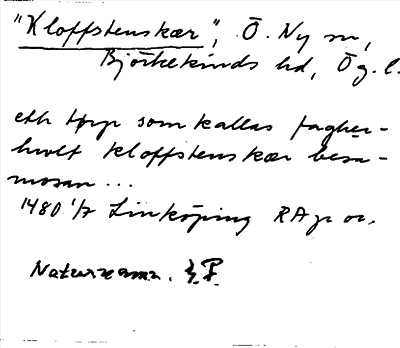 "Kloffstenskær", Ö. Ny sn,
Björkekinds hd, Ög. l.
eth torp som kallas fagher-
hwlt kloffstenskær besa-
mosan ...
1480 1/7 Linköping RA p or.
Naturnamn.